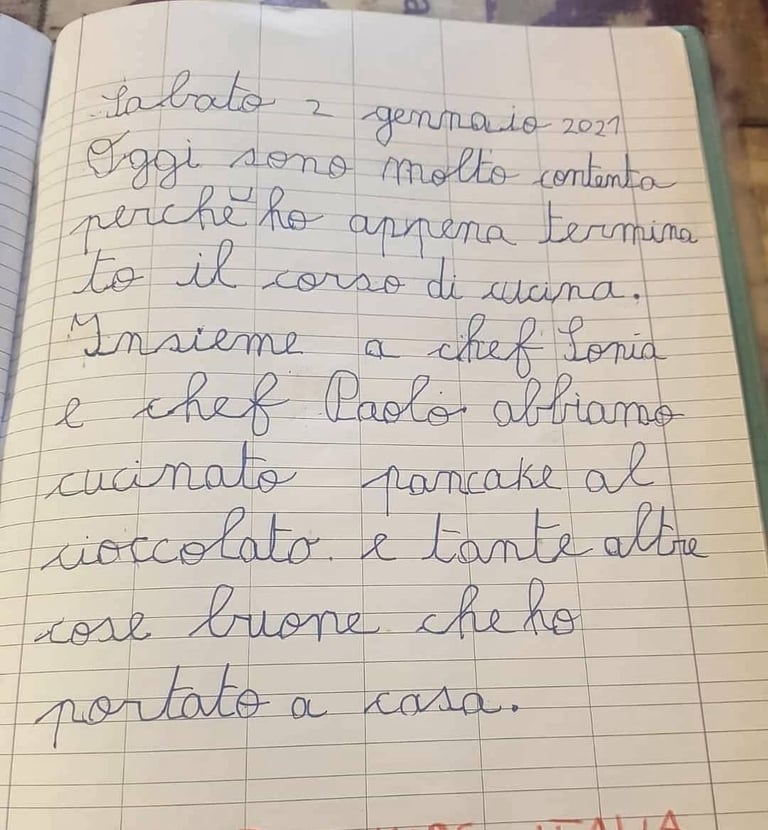 Sabato 2 gennaio 2021
Oggi sono molto contenta
perchè ho appena termina
to il corso di cucina.
Insieme a chef Sonia
e chef Paolo abbiamo
cucinato pancake al
cioccolato e tante altre
cose buone che ho
portato a casa.